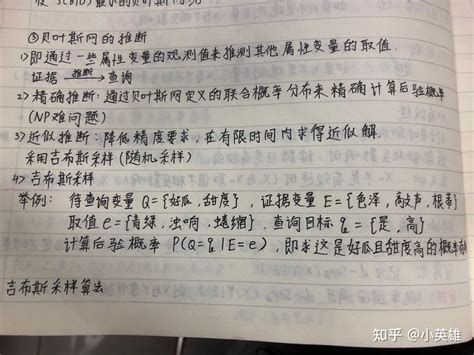 使 s(B|D) 最小的贝叶斯网
③贝叶斯网的推断
1>即通过一些属性变量的观测值来推测其他属性变量的取值.
证据 推断→ 查询
2>精确推断:通过贝叶斯网定义的联合概率分布来精确计算后验概率
(NP难问题)
3>近似推断:降低精度要求,在有限时间内求得近似解.
采用吉布斯采样(随机采样)
4>吉布斯采样
举例: 待查询变量 Q={好瓜,甜度},证据变量 E={色泽,敲声,根蒂}
取值 e={青绿,浊响,蜷缩},查询目标 q={是,高}
计算后验概率 P(Q=q|E=e),即求这是好瓜且甜度高的概率
吉布斯采样算法
知乎 @小英雄